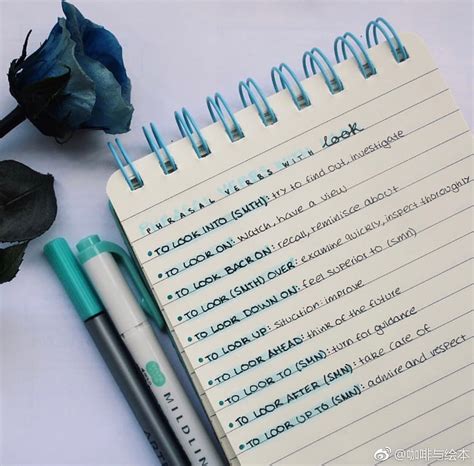 PHRASAL VERBS WITH look
• TO LOOK INTO (SMTH): try to find out, investigate
• TO LOOK ON: watch, have a view
• TO LOOK BACK ON: recall, reminisce about
• TO LOOK (SMTH) OVER: examine quickly, inspect thoroughly
• TO LOOK DOWN ON: feel superior to (smn)
• TO LOOK UP: situation: improve
• TO LOOK AHEAD: think of the future
• TO LOOK TO (SMN): turn for guidance
• TO LOOK AFTER (SMN): take care of
• TO LOOK UP TO (SMN): admire and respect
MILDLIN
ARTE
@咖啡与绘本